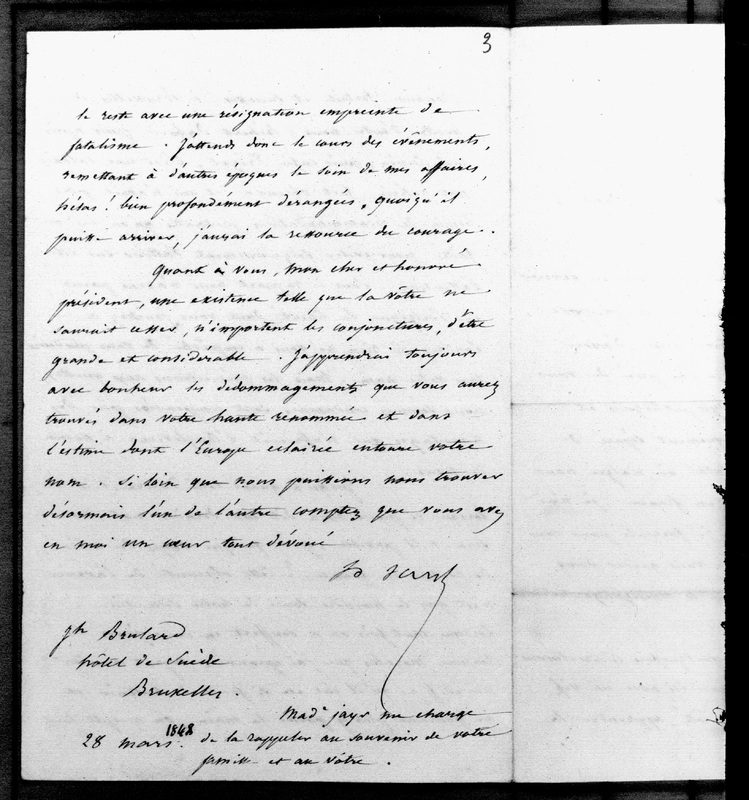 3
le reste avec une résignation empreinte de
fatalisme. J'attends donc le cours des évènements,
remettant à d'autres époques le soin de mes affaires,
hélas! bien profondément dérangées. quoiqu'il
puisse arriver, j'aurai la ressource du courage.
Quant à vous, mon cher et honoré
président, une existence telle que la vôtre ne
saurait cesser, n'importent les conjonctures, d'être
grande et considérable. J'apprendrai toujours
avec bonheur les dédommagements que vous aurez
trouvés dans votre haute renommée et dans
l'estime dont l'Europe eclairée entoure votre
nom. Si loin que nous puissions nous trouver
désormais l'un de l'autre comptez que vous avez
en moi un cœur tout dévoué
Brulard
hôtel de Suède
Bruxelles.
Mad.e jayr me charge
28 mars. 1848 de la rappeler au souvenir de votre
famille et au vôtre.